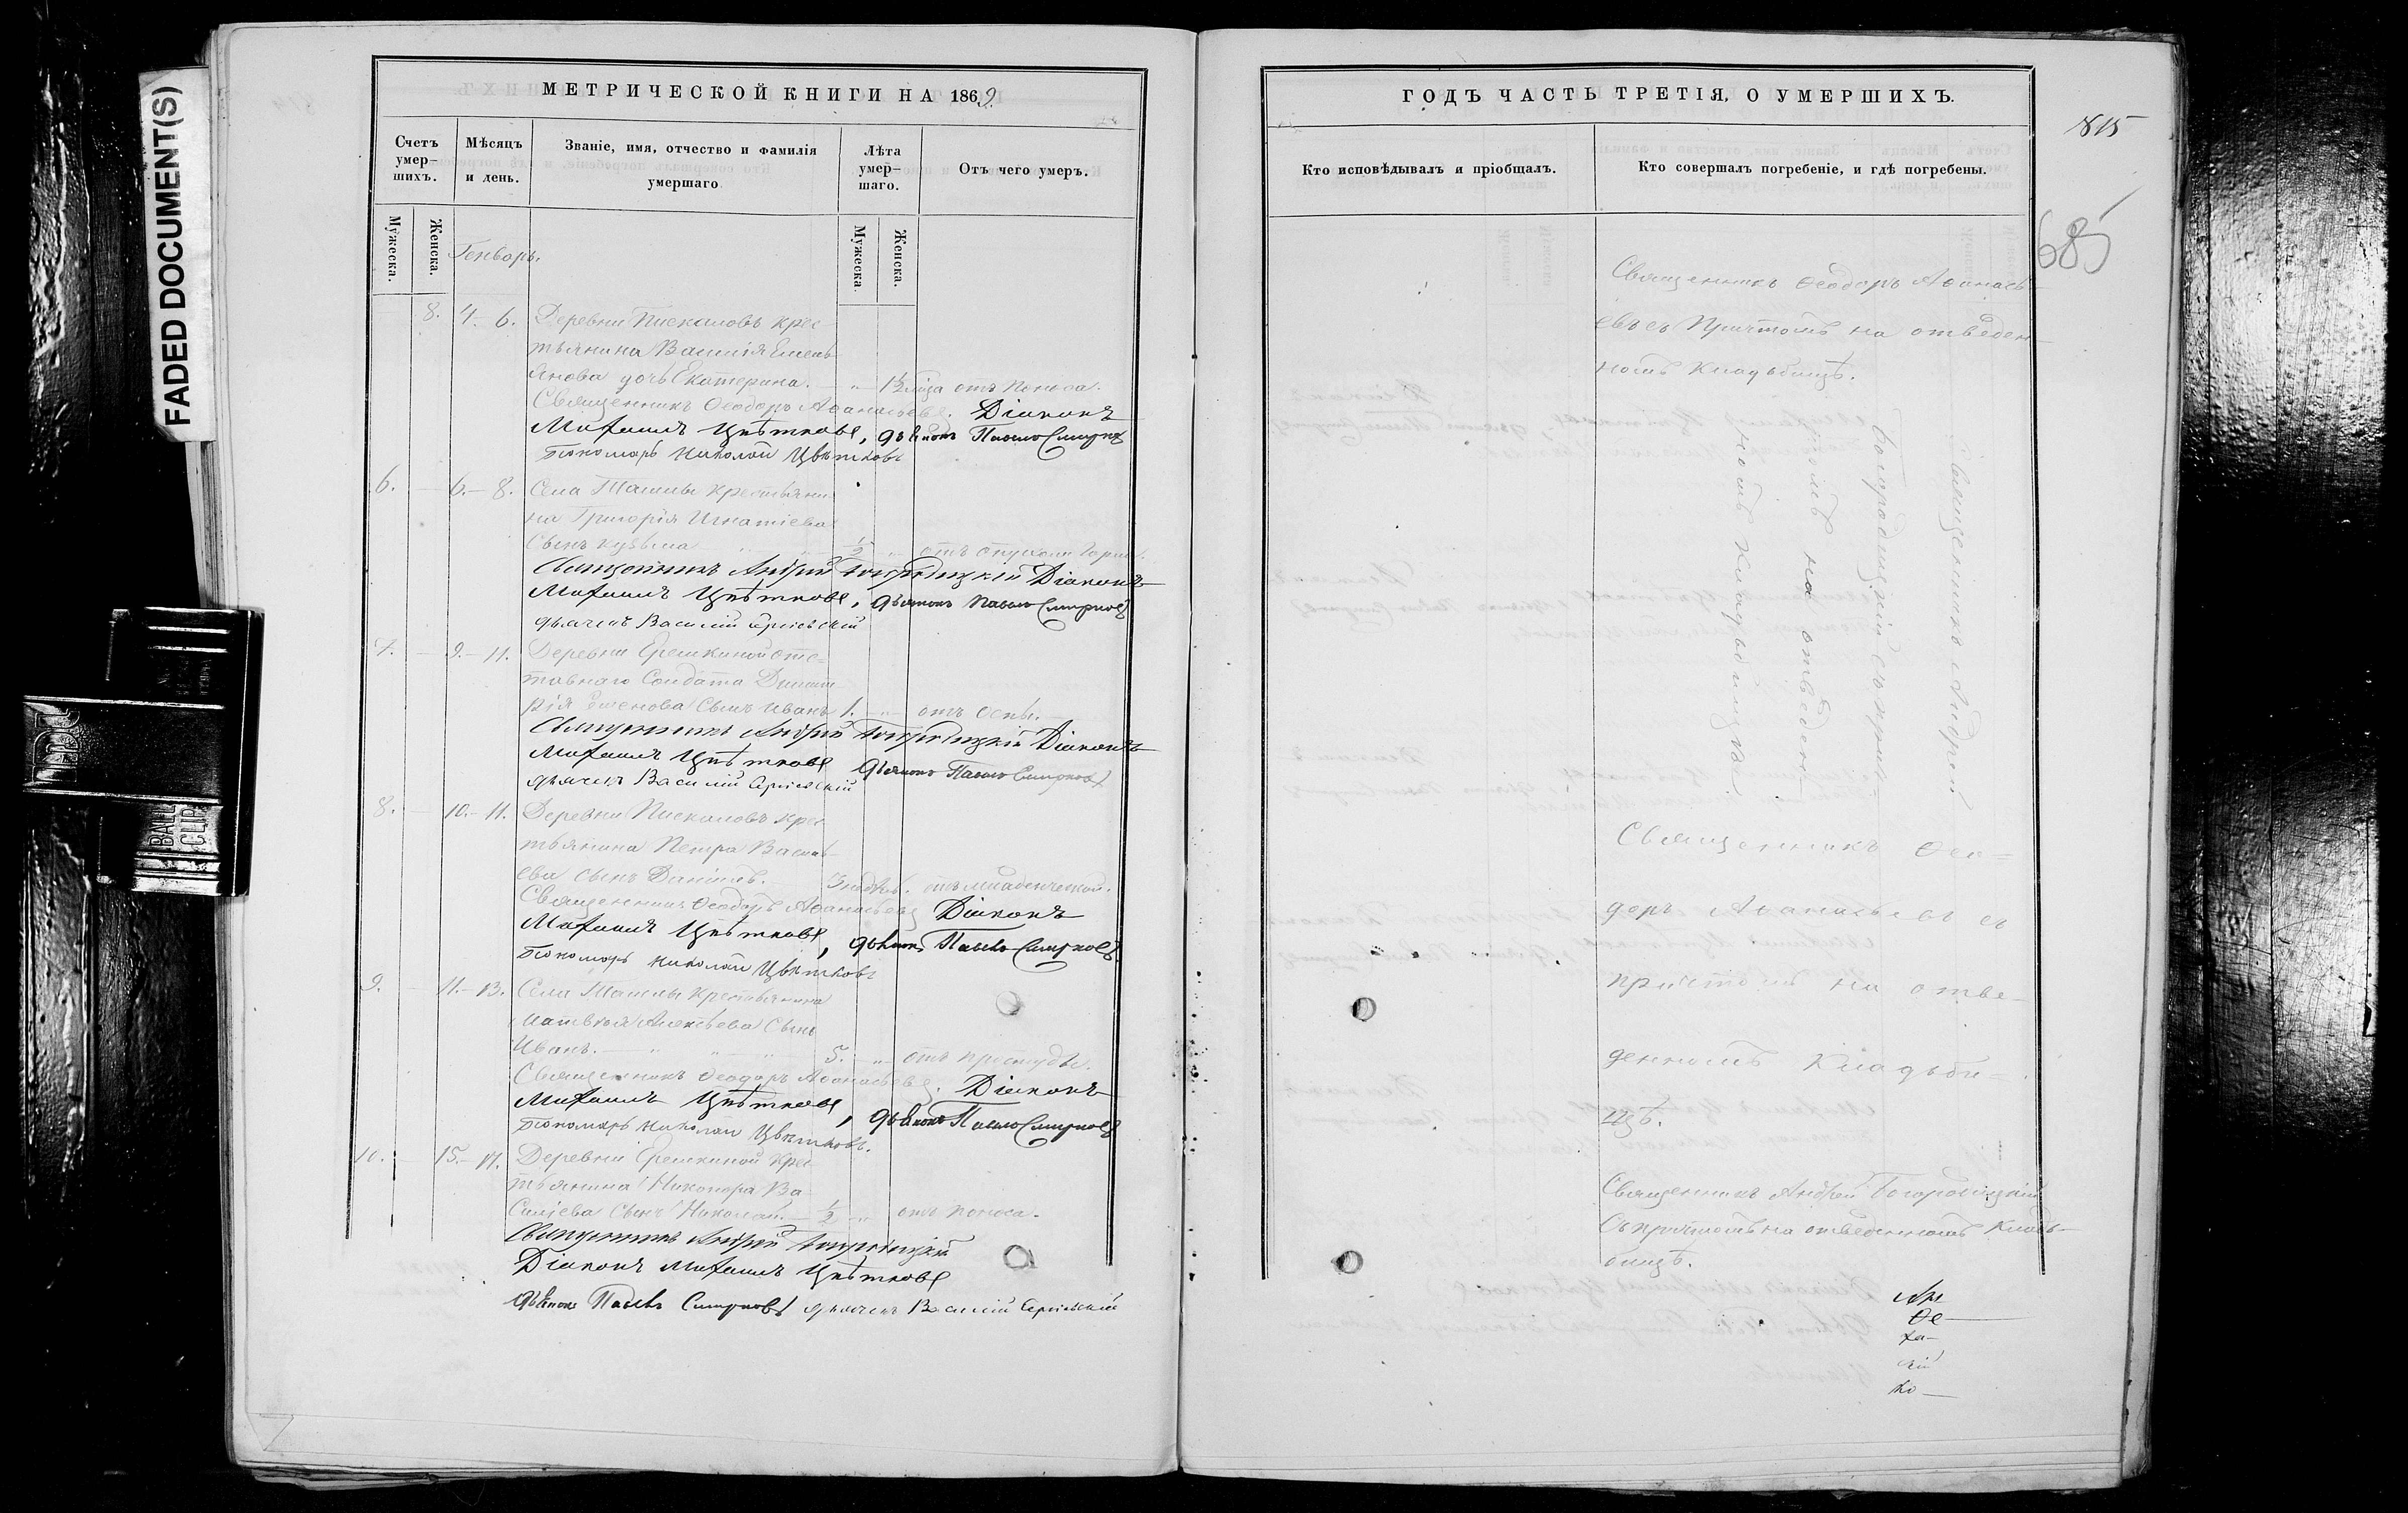 FADED DOCUMENT(S)
МЕТРИЧЕСКОЙ КНИГИ НА 1869.
Счетъ умер-шихъ.
Мѣсяцъ и день.
Званіе, имя, отчество и фамилія умершаго
Лѣта умер-шаго.
Отъ чего умеръ.
Мужеска.
Женска.
Генворь.
Мужеска
Женска.
8. 4. 6. Деревни Пискаловъ крес
тьянина Василія Емель
янова дочь Екатерина. — „ — 1½ года отъ поноса.
Священникъ Ѳеодоръ Аѳанасьевъ. Діаконъ
Михаилъ Цвѣтковъ, дьячокъ Павелъ Смирновъ
Пономарь Николай Цвѣтковъ
6. — 6. — 8. Села Ташлы крестьяни
на Григорія Игнатіева
Сынъ Кузьма ½ „ отъ опухоли горла.
Священникъ Андрей Богородицкій Діаконъ
Михаилъ Цвѣтковъ, дьячокъ Павелъ Смирновъ
дьячекъ Василій Сергіевскій
7. — 9. — 11. Деревни Еремкиной отс=
тавнаго Солдата Димит
рія Сынъ Иванъ 1. — отъ оспы.
Священникъ Андрей Богородицкій Діаконъ
Михаилъ Цвѣтковъ дьячокъ Павелъ Смирновъ
дьячекъ Василій Сергіевскій
8. — 10. — 11. Деревни Пискаловъ крес
тьянина Петра Василь
ева сынъ Даніилъ. — 3 недѣл. отъ младенческой.
Священникъ Ѳеодоръ Аѳанасьевъ Діаконъ
Михаилъ Цвѣтковъ, дьячокъ Павелъ Смирновъ
Пономарь Николай Цвѣтковъ
9. — 11. — 13. Села Ташлы крестьянина
Матвѣя Алексѣева Сынъ
Иванъ. — „ — „ — „ 5. — „ отъ простуды.
Священникъ Ѳеодоръ Аѳанасьевъ. Діаконъ
Михаилъ Цвѣтковъ, дьячокъ Павелъ Смирновъ
Пономарь Николай Цвѣтковъ.
10. — 15. — 17. Деревни Еремкиной крес
тьянина Никонора Ва
силіева Сынъ Николай. — ½ „ отъ поноса.
Священникъ Андрей Богородицкій
Діаконъ Михаилъ Цвѣтковъ
дьячокъ Павелъ Смирновъ дьячекъ Василій Сергіевскій
ГОДЪ ЧАСТЬ ТРЕТІЯ, О УМЕРШИХЪ.
815
685
Кто исповѣдывалъ и пріобщалъ.
Кто совершалъ погребеніе, и гдѣ погребены.
Священникъ Ѳеодоръ Аѳанась
евъ съ Причтомъ на отведен
номъ Кладбищѣ.
Священникъ Андрей
Богородицкій съ прич
томъ на отведен
номъ кладбищѣ
Священникъ Ѳео=
доръ Аѳанасьевъ съ
причтомъ на отве-
денномъ Кладби-
щѣ.
Священникъ Андрей Богородицкій
Съ причтомъ на отведенномъ Клад-
бищѣ.
Ѳе
ко
BALL CLIP